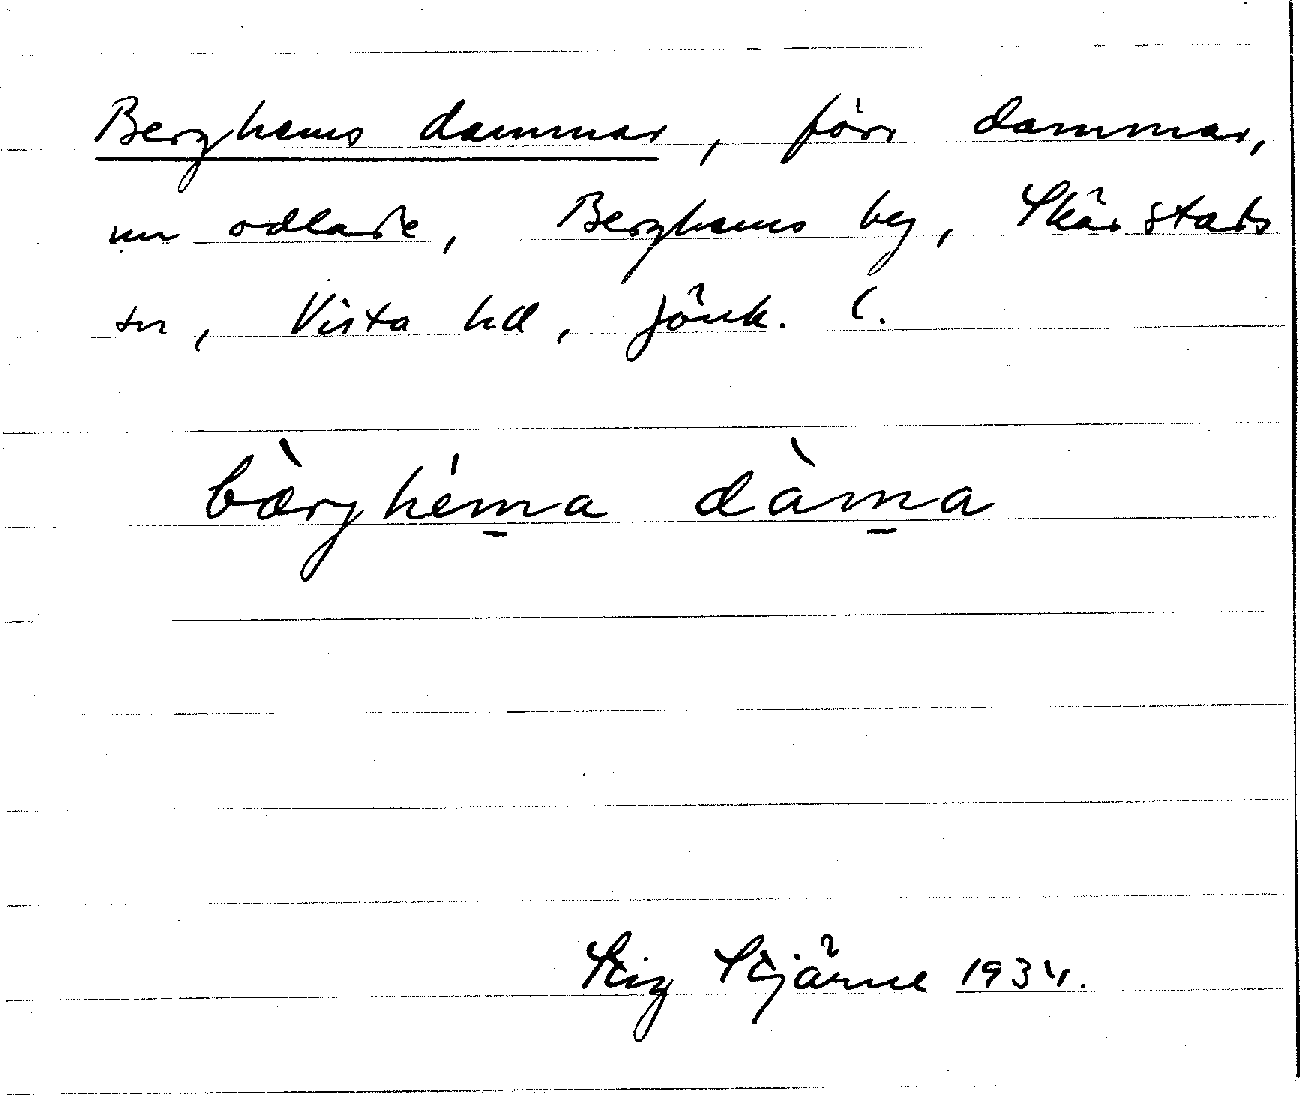 Berghems dammar, förr dammar,
nu odlade, Berghems by, Skärstads
sn, Vista hd, Jönk. l.
bærghema dàma
Stig Stjärne 1934.